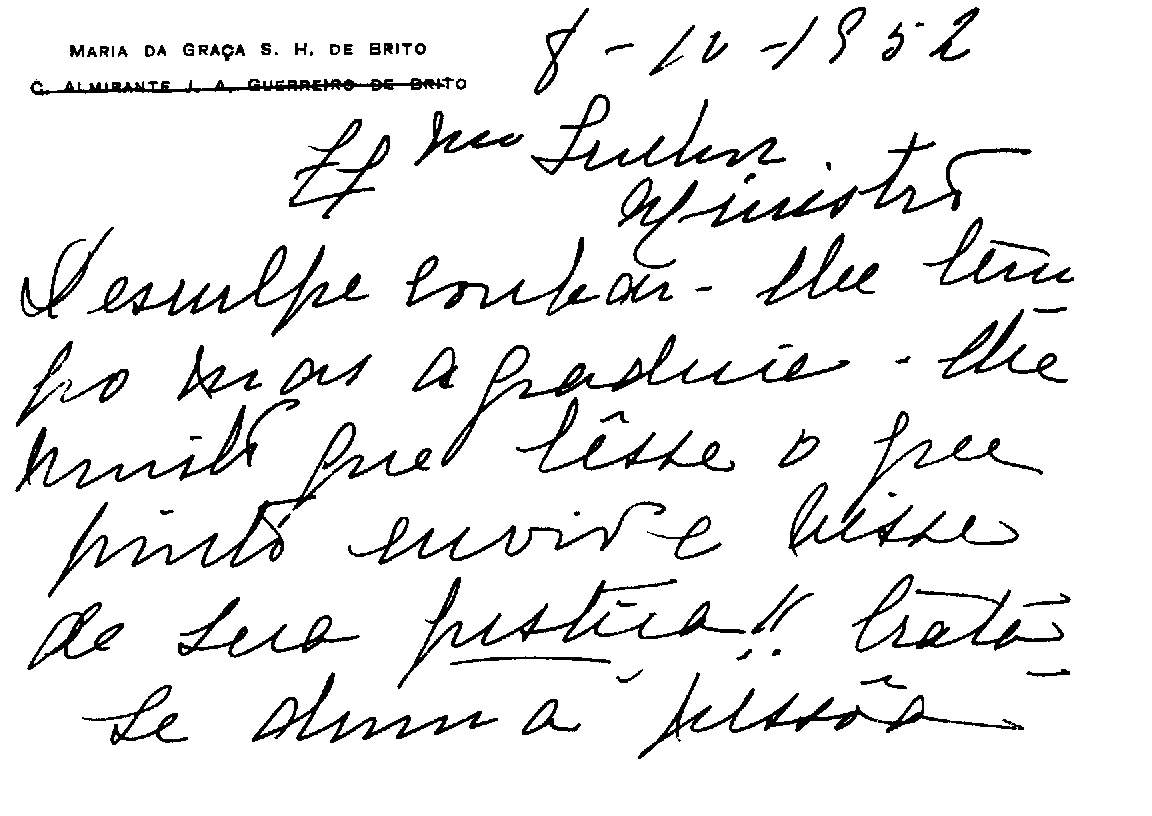 MARIA DA GRAÇA S. H. DE BRITO
C. ALMIRANTE J. A. GUERREIRO DE BRITO
8-10-1952
Exmo Senhor
Ministro
Desculpe roubar-lhe tem
po mas agradecia-lhe
muito que lêsse o que
junto envio e visse
de sua justiça!! Trata-
se duma pessôa